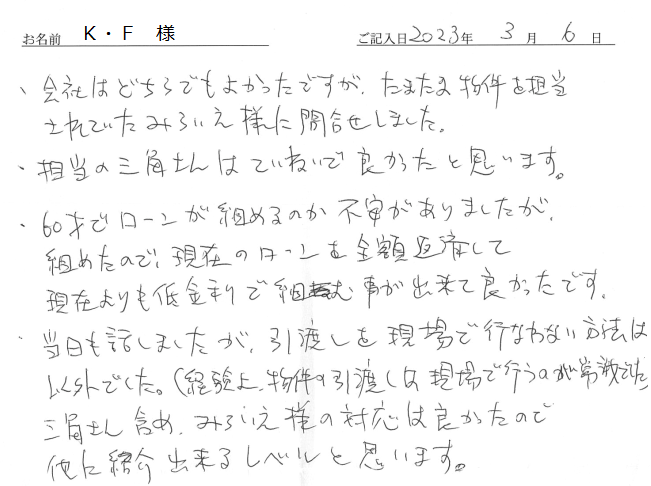 お名前 K・F 様 ご記入日2023年 3月 6日
、会社はどちらでもよかったですが、たまたま物件を担当
されていたみらいえ様に問合せしました。
・担当の三角さんはていねいで良かったと思います。
・60才でローンが組めるのか不審がありましたが、
組めたので、現在のローンを全額返済して
現在よりも低金利で組む事が出来て良かったです。
、当日も話しましたが、引渡しを現場で行なわない方法は
以外でした。(経験上、物件の引渡しは現場で行うのが常識でした
三角さん含め、みらいえ様の対応は良かったので
他に紹介出来るレベルと思います。